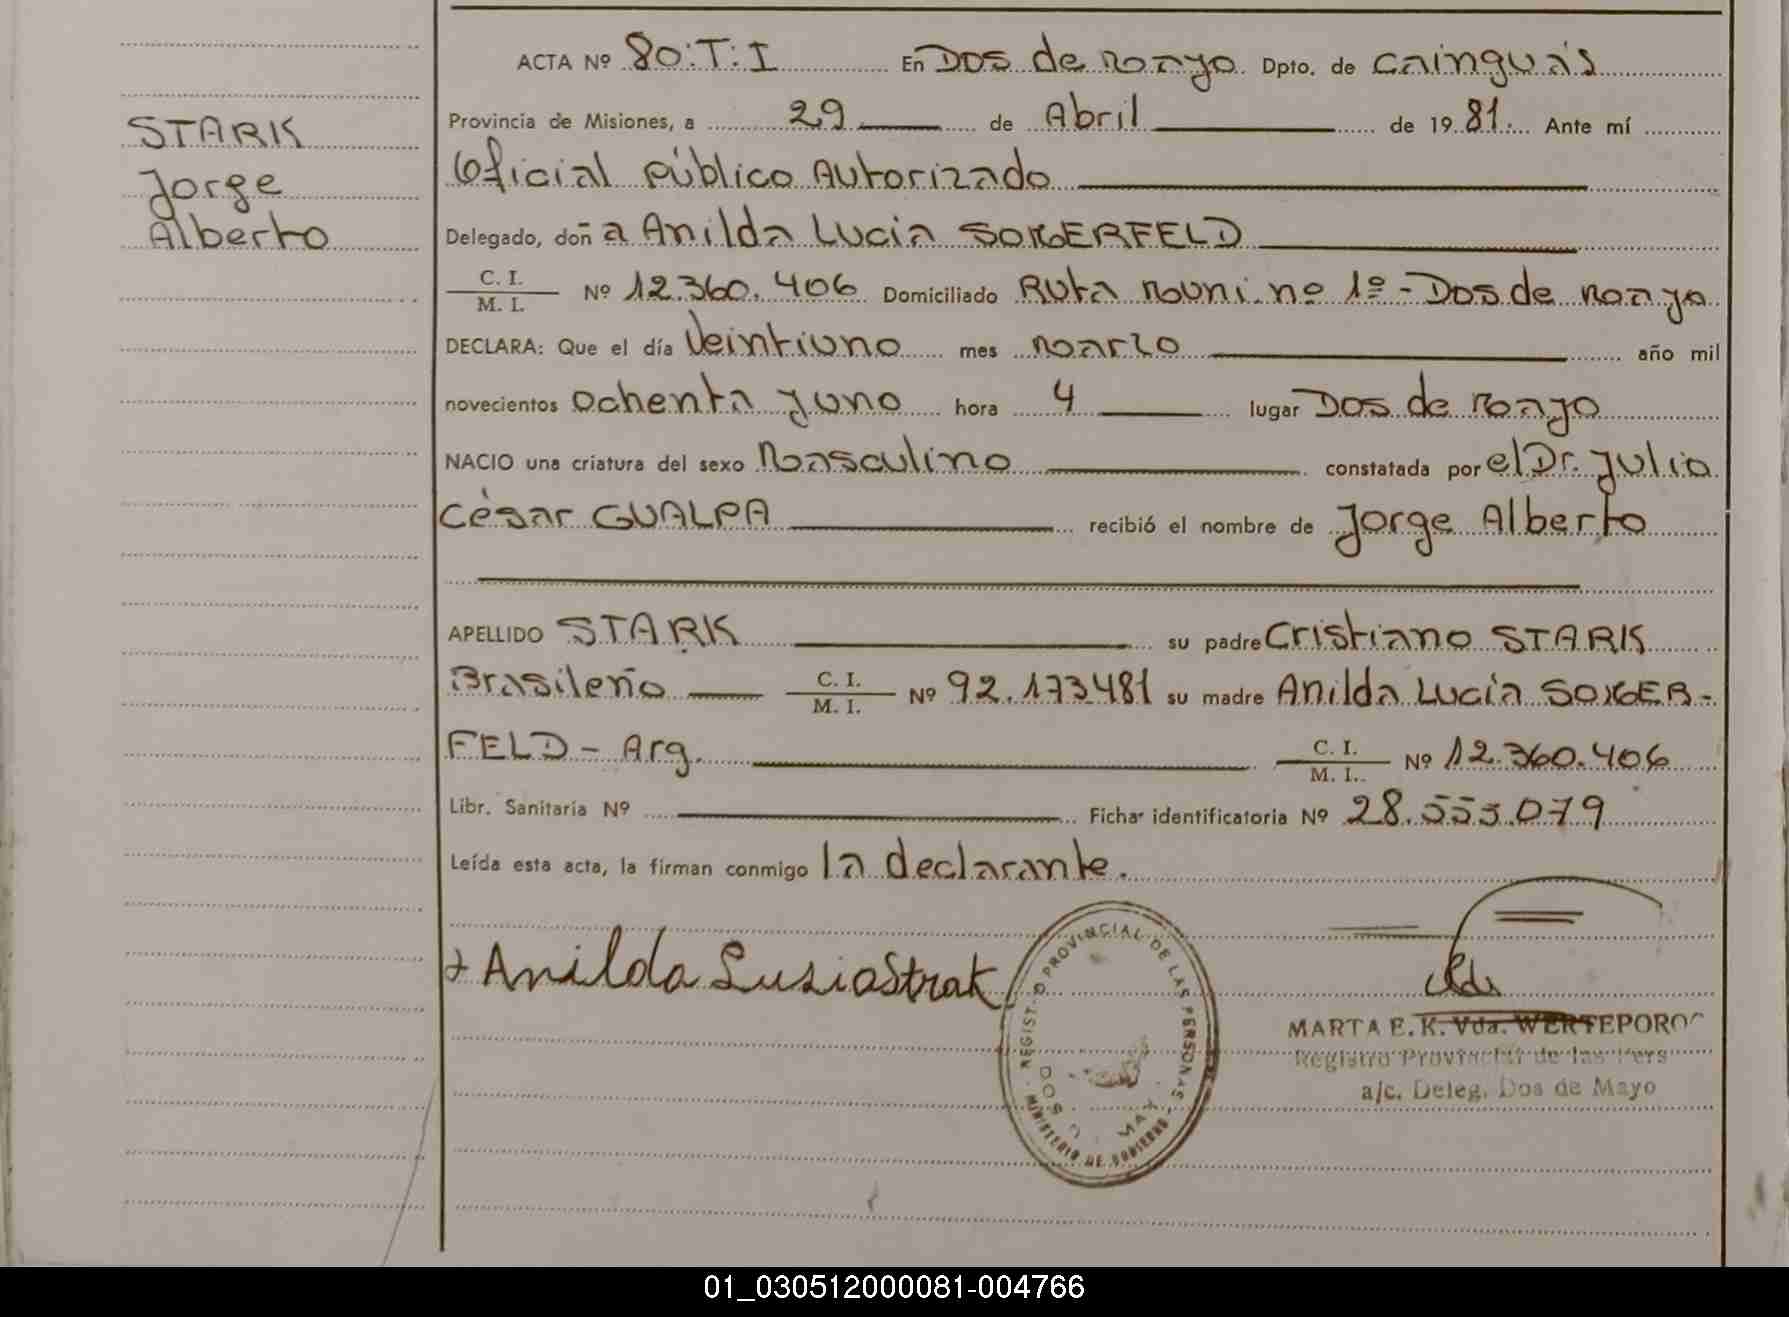 STARK
Jorge
Alberto
ACTA Nº 80:T:I En Dos de Mayo Dpto. de Cainguás
Provincia de Misiones, a 29 de Abril de 1981. Ante mí
Oficial Público Autorizado
Delegado, doña Anilda Lucia SORGERFELD
C. I.
M. I. Nº 12.360.406 Domiciliado Ruta Muni. nº 1º - Dos de Mayo
DECLARA: Que el día Veintiuno mes Marzo año mil
novecientos ochenta y uno hora 4 lugar Dos de Mayo
NACIO una criatura del sexo Masculino constatada por el Dr. Julio
César GUALPA recibió el nombre de Jorge Alberto
APELLIDO STARK su padre Cristiano STARK
Brasileño C. I. M. I. Nº 92.173481 su madre Anilda Lucía SORGER-
FELD - Arg. C. I. M. I. Nº 12.360.406
Libr. Sanitaria Nº Ficha identificatoria Nº 28.553.079
Leída esta acta, la firman conmigo la declarante.
Anilda Lusia Strak
REGIST.O PROVINCIAL DE LAS PERSONAS
DOS MAY
MINISTERIO DE GOBIERNO
MARTA E. K. Vda.
Registro Provincial de las Pers
a/c. Deleg. Dos de Mayo
01_030512000081-004766